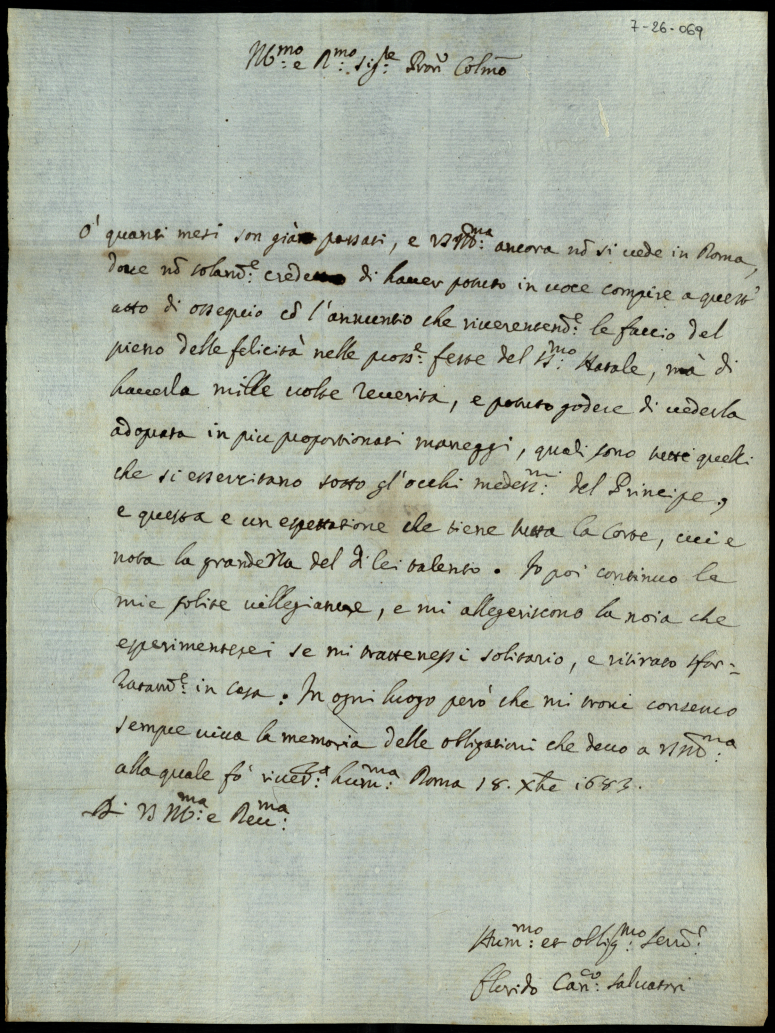 7-26-069
Ill.mo e R.mo Sig.re Pron Colmo
O' quanti mesi son già passati, e VS Ill.ma ancora nõ si vede in Roma,
doue nõ solam.e credeuo di hauer potuto in uoce compire a quest'
atto di ossequio cõ l'annuntio che riuerentem.e le faccio del
pieno delle felicità nelle pross.e feste del SS.mo Natale, mà di
hauerla mille uolte reuerita, e potuto godere di uederla
adoprata in piu proportionati maneggi, quali sono tutti quelli
che si essercitano sotto gl'occhi medess.mi del Principe,
e questa e un espettatione che tiene tutta la Corte, cui e
nota la grandezza del di lei talento. Io poi continuo le
mie solite uillegiature, e mi allegeriscono la noia che
esperimenterei se mi trattenessi solitario, e ritirato sfor-
zatam.e in casa. In ogni luogo però che mi troui conseruo
sempre uiua la memoria delle obligationi che deuo a VS Ill.ma
alla quale fò riuer.a hum.ma Roma 18. Xbre 1683.
Di VS Ill.ma e Reu.ma
Hum.mo et oblig.mo Seru.e
Florido Can.co Saluatori